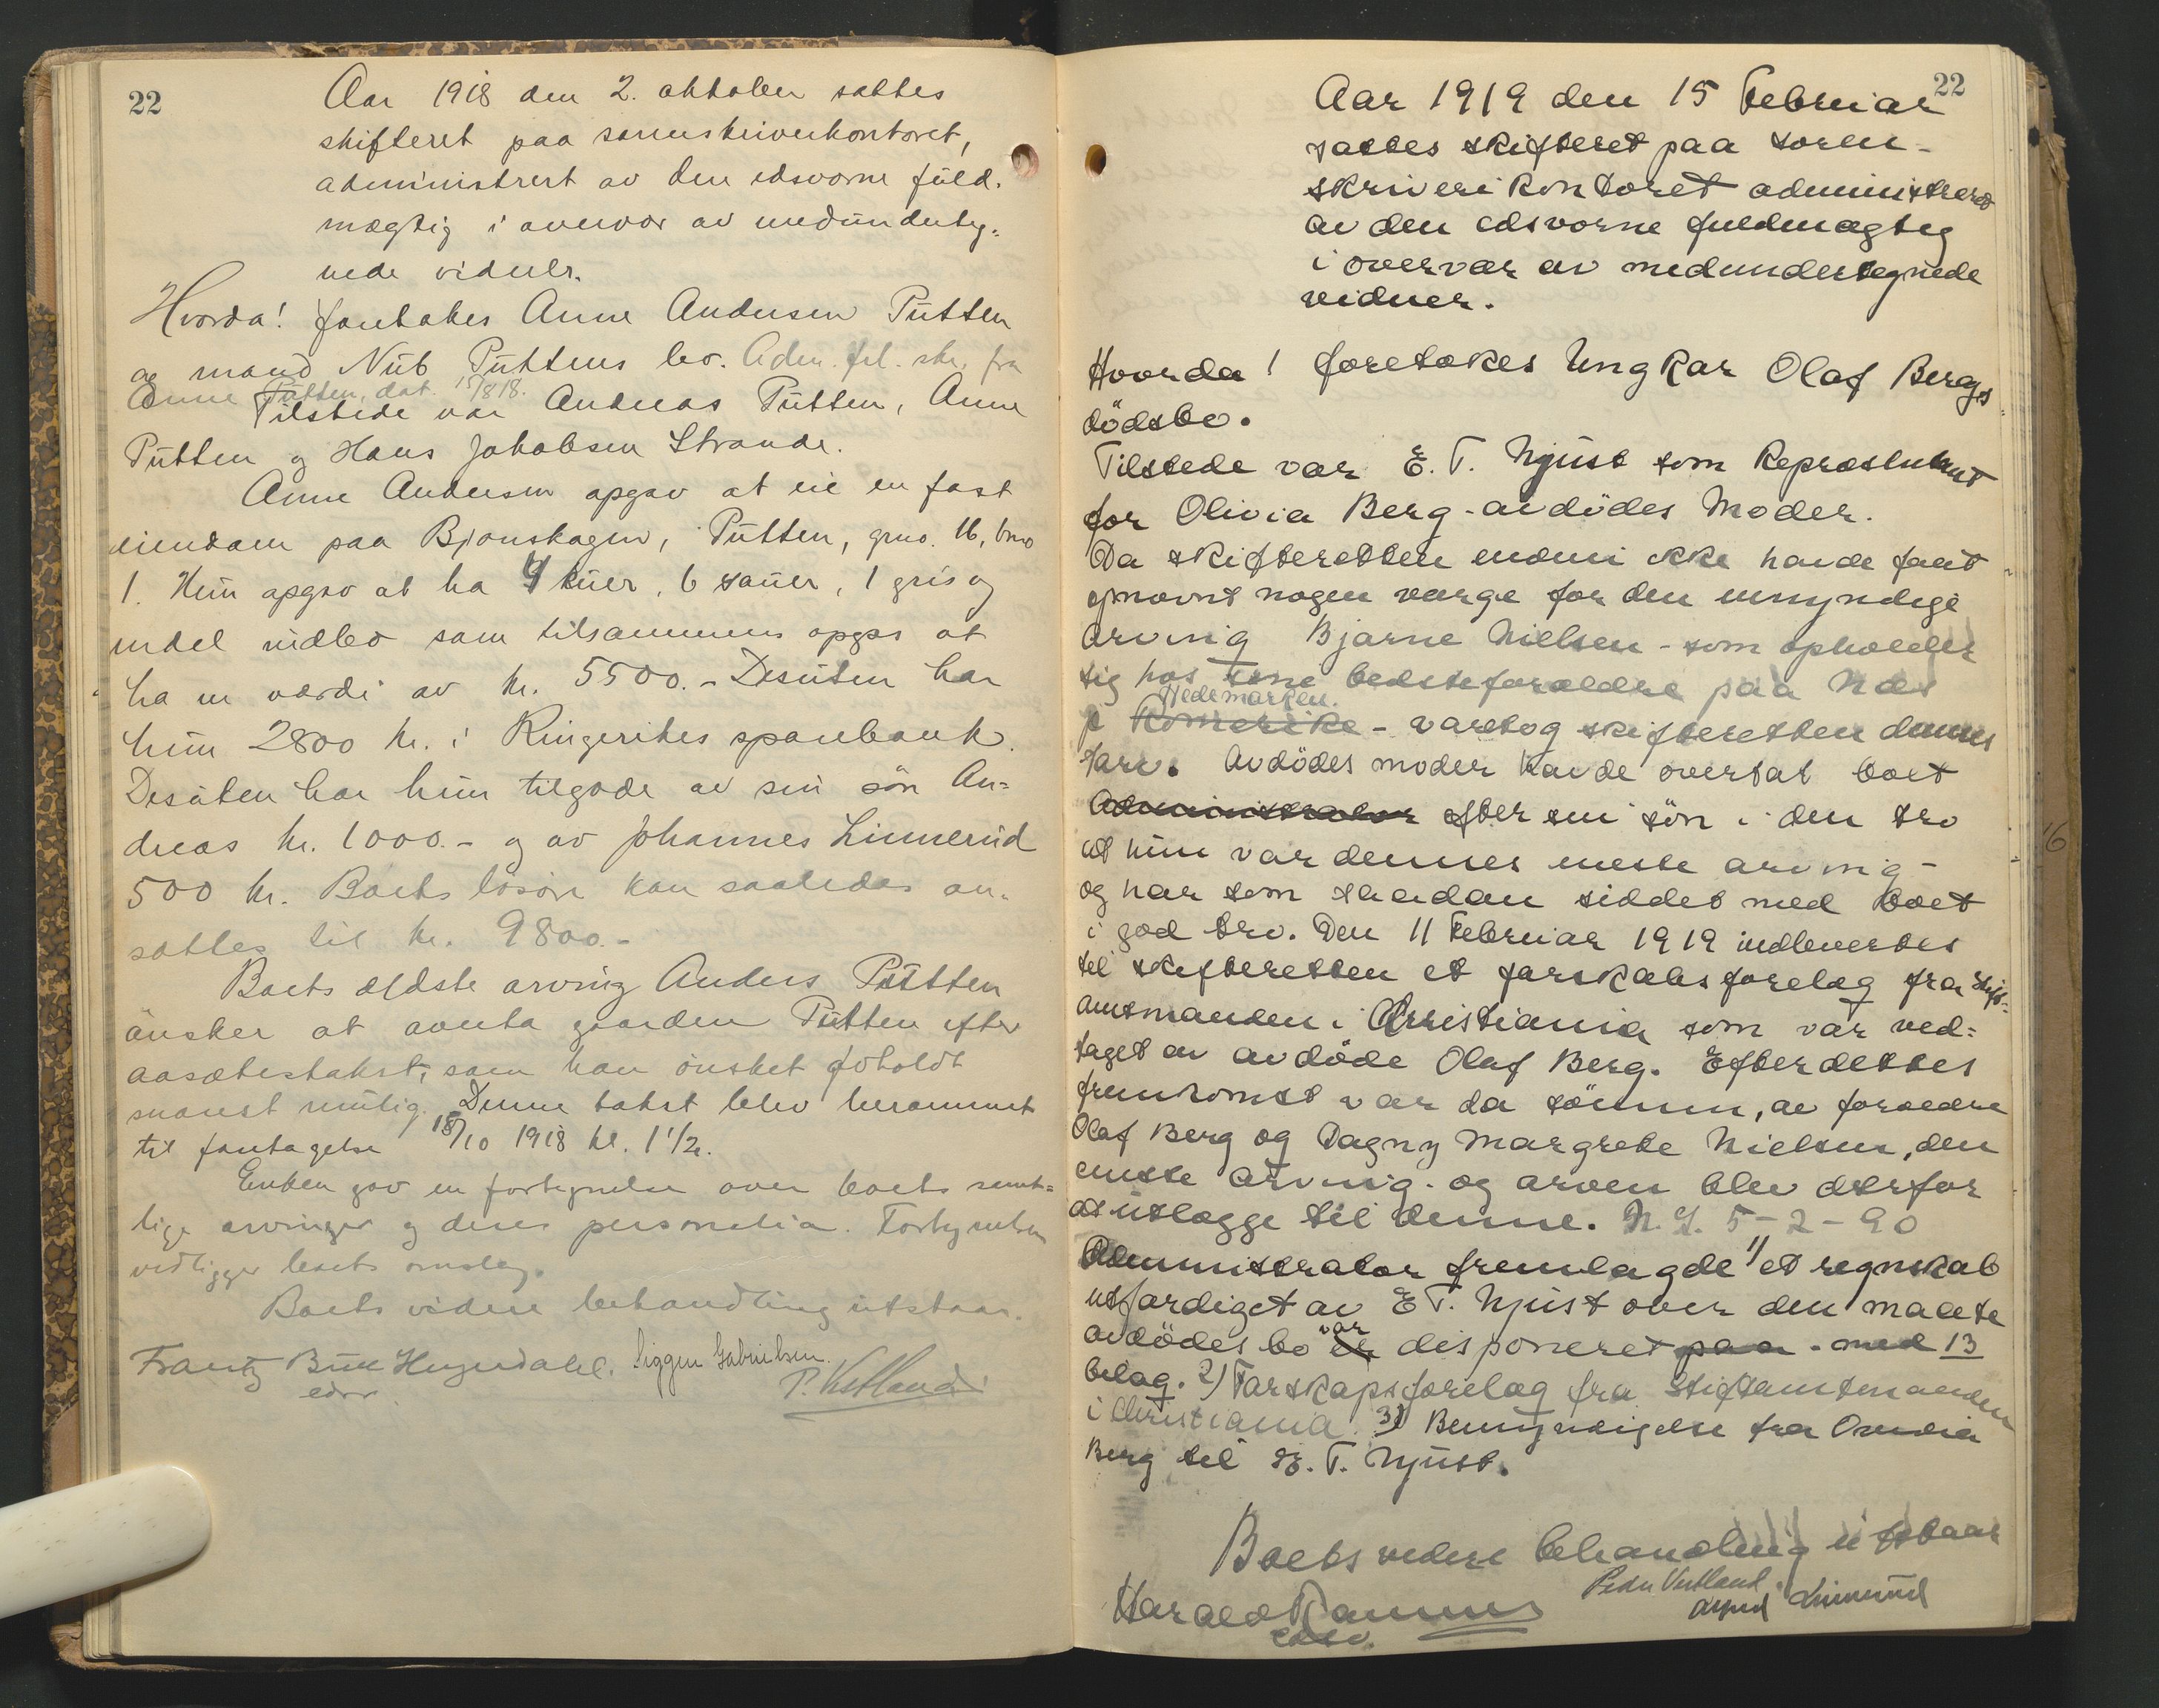 22
Aar 1918 den 2. oktober sattes
skifteret paa sorenskriverkontoret,
administrert av den edsvorne fuld-
mægtig i overvær av medunderteg-
nede vidner.
Hvorda! foretokes Anne Andersen Pütten
og mand Nüb Püttens bo. Adm. frl. skr. fra
Anne Pütten, dat. 15/8 18.
Tilstede var Andreas Pütten, Anne
Pütten og Hans Jakobsen Strande.
Anne Andersen opgav at eie en fast
eiendom paa Bjoneskogen, Pütten, gno. 16, bno
1. Hun opgav at ha 4 kuer, 6 sauer, 1 gris og
endel indbo som tilsammens opgas at
ha en værdi av kr. 5500.- Desuten har
hun 2800 kr. i Ringerikes sparebank.
Desuten har hun tilgode av sin søn An-
dreas kr. 1000.- og av Johannes Linnerud
500 kr. Boets løsøre kan saaledes an-
sættes til kr. 9800.-
Boets ældste arving Anders Pütten
ønsker at overta gaarden Pütten efter
aasætestakst, som han ønsket avholdt
snarest mulig. Denne takst blev berammet
til foretagelse 18/10 1918 kl. 1 1/2.
Enken gav en fortegnelse over boets samt-
lige arvinger og deres personalia. Fortegnelsen
vedligger boets omslag.
Boets videre behandling utstaar.
Frantz Bull Hegerdahl. Siggen Gabrielsen.
edsv. P. Vestland
22
Aar 1919 den 15 Februar
sattes skifteret paa soren-
skriverikontoret administreret
av den edsvorne fuldmægtig
i overvær av medundertegnede
vidner.
Hvorda! foretokes Ungkar Olaf Bergs
dödsbo.
Tilstede var E. T. Njust som Repræsentant
for Olivia Berg - avdödes Moder.
Da skifteretten endnu ikke havde faat
opnævnt nogen værge for den umyndige
arving Bjarne Nielsen - som opholder
sig hos sine bedsteforældre paa Nes
Hedemarken.
p Romerike - varetog skifteretten dennes
tarv. Avdödes moder havde overtat boet
Administrator efter sin sön i den tro
at hun var dennes neste arving -
og har som saadan siddet med boet
i god tro. Den 11 Februar 1919 indlevertes
til skifteretten et farskabsforelæg fra Stift-
amtmanden i Christiania som var ved-
taget av avdöde Olaf Berg. Efter dettes
fremkomst var da sönnen, av forældre
Olaf Berg og Dagny Margrete Nielsen, den
eneste arving. og arven blev derfor
at utlægge til denne. N. L. 5-2-90
Administrator fremlagde 1) et regnskab
utfærdiget av E T. Njust over den maate
avdödes bo er var disponeret paa - med 13
bilag. 2) Farskapsforelæg fra Stiftamtmanden
i Christiania. 3) Bemyndigelse fra Olivia
Berg til E. T. Njust.
Boets videre behandling utstaar
Peder Vestland
Harald Rasmus Alfred Linnerud
edsv.
16